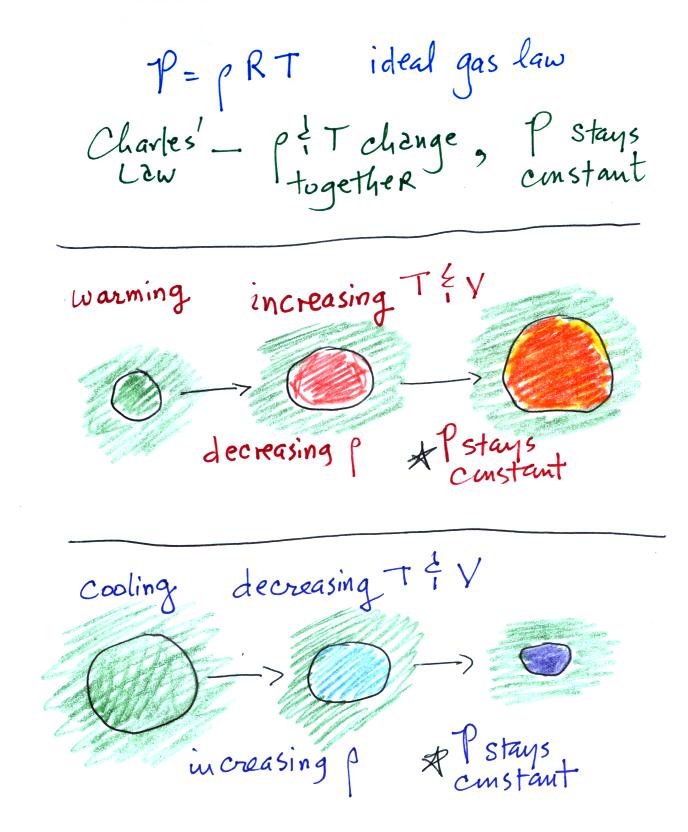 P = ρ R T ideal gas law
Charles' Law — ρ & T change together, P stays constant
warming increasing T & V
decreasing ρ ★ P stays constant
cooling decreasing T & V
increasing ρ ★ P stays constant